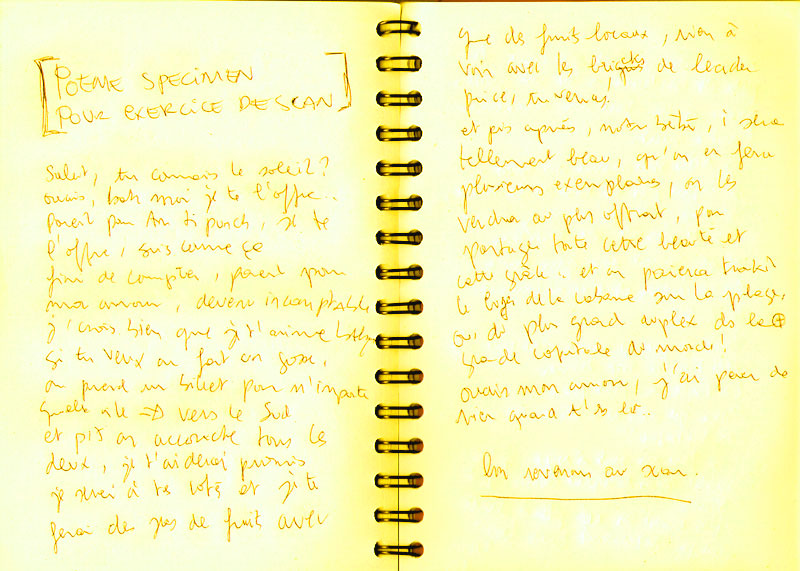 [POÈME SPECIMEN
POUR EXERCICE DE SCAN]
Salut, tu connais le soleil?
ouais, bah moi je te l'offre..
Pareil pour ton ti punch, je te
l'offre, suis comme ça
fini de compter, pareil pour
mon amour, devenu incomptable,
j'crois bien que j't'aime
si tu veux on fait un gosse,
on prend un billet pour n'importe
quelle île => vers le Sud
et pis on accouche tous les
deux, je t'aiderai promis
je serai à tes côtés et j'te
ferai des jus de fruits avec
que des fruits locaux, rien à
voir avec les briques de leader
price, tu verras!
et pis après, notre bébé, i sera
tellement beau, qu'on en fera
plusieurs exemplaires, on les
vendra au plus offrant, pour
partager toute cette beauté et
cette grâce.. et on paiera
le loyer de la cabane sur la plage,
ou du plus grand duplex ds la +
grande capitale du monde!
ouais mon amour, j'ai peur de
rien quand t'es là..
Bon revenons au scan.